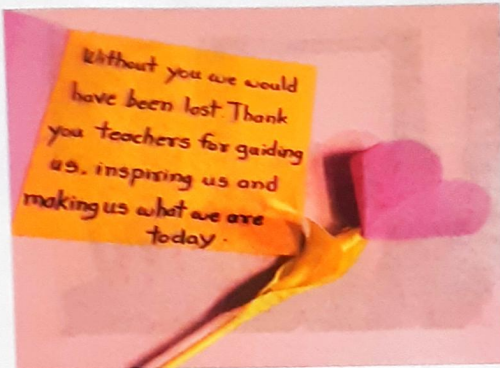 Without you we would
have been lost. Thank
you teachers for guiding
us, inspiring us and
making us what we are
today.